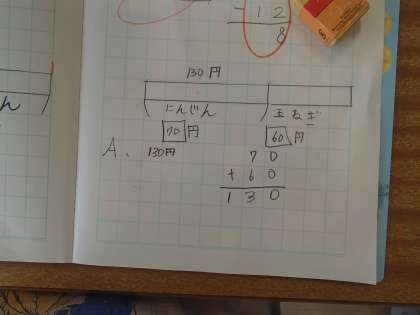 - 12
8
130円
にんじん 玉ねぎ
70円 60円
A. 130円
70
+ 60
130
ん